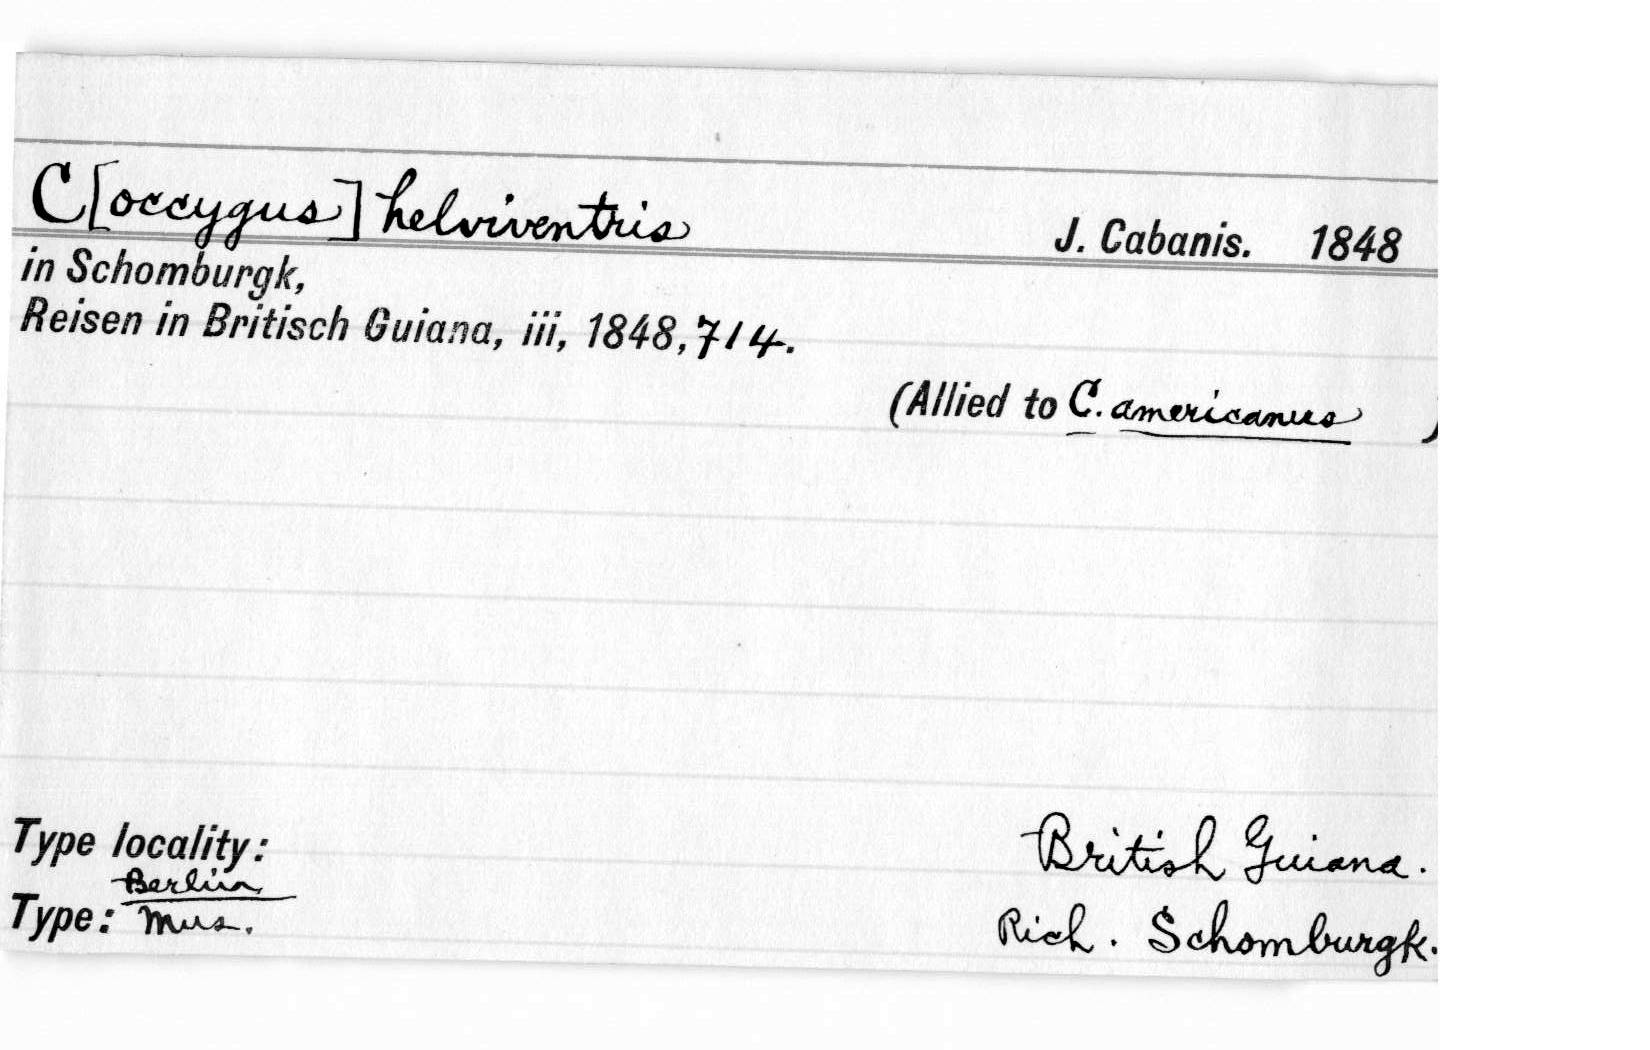 C[occygus] helviventris J. Cabanis. 1848
in Schomburgk,
Reisen in Britisch Guiana, iii, 1848, 714.
(Allied to C. americanus )
Type locality: British Guiana.
Berlin
Type: Mus. Rich. Schomburgk.